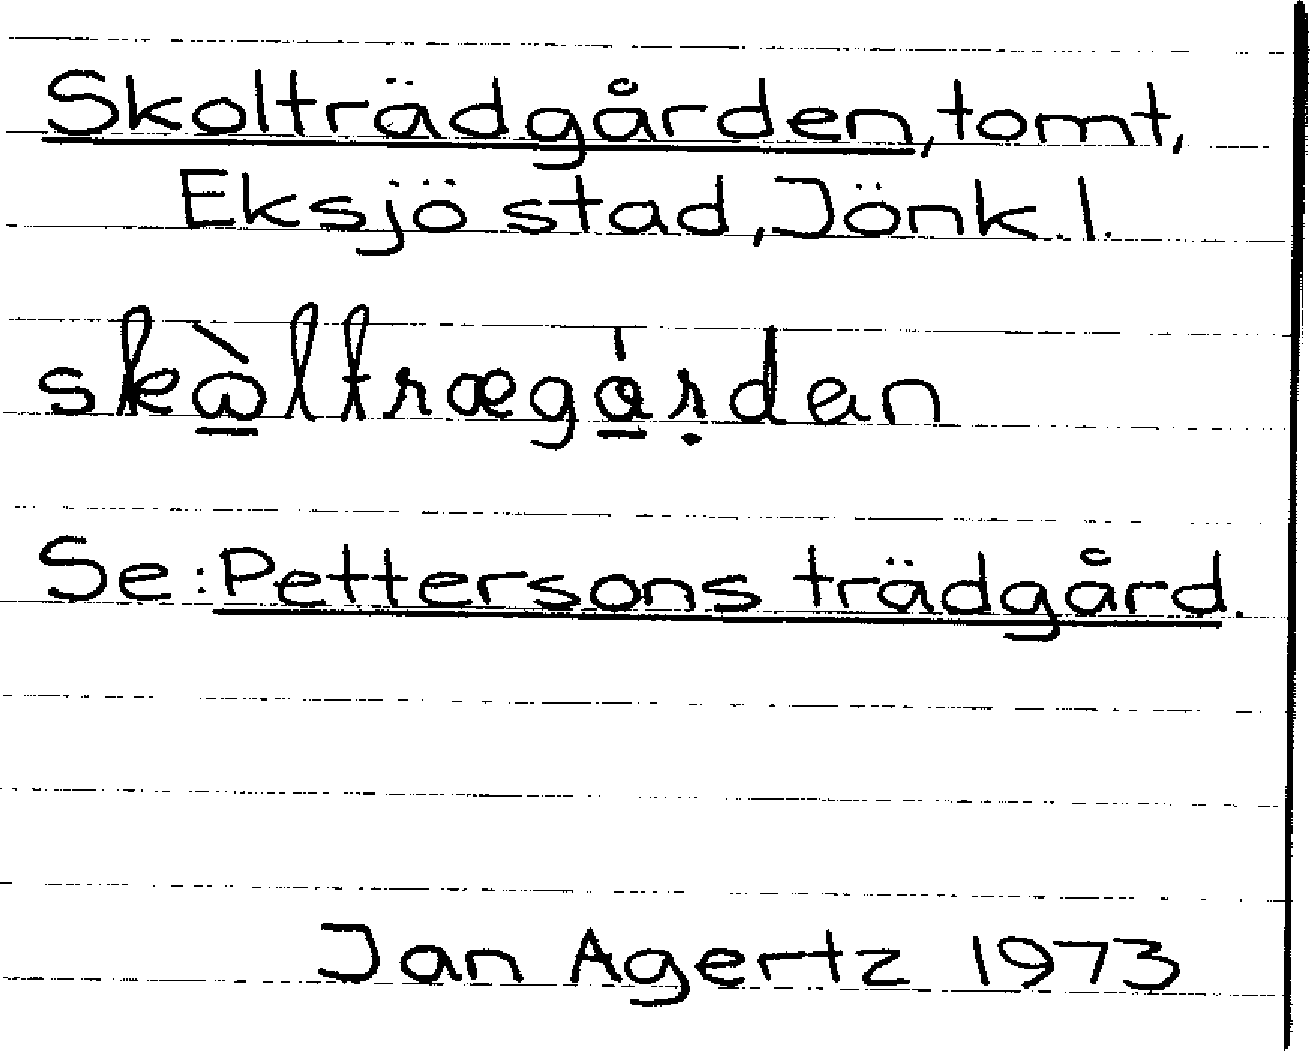 Skolträdgården, tomt,
Eksjö stad, Jönk. l.
skὼ̲ltrægá̲ṛdan
Se: Pettersons trädgård.
Jan Agertz 1973